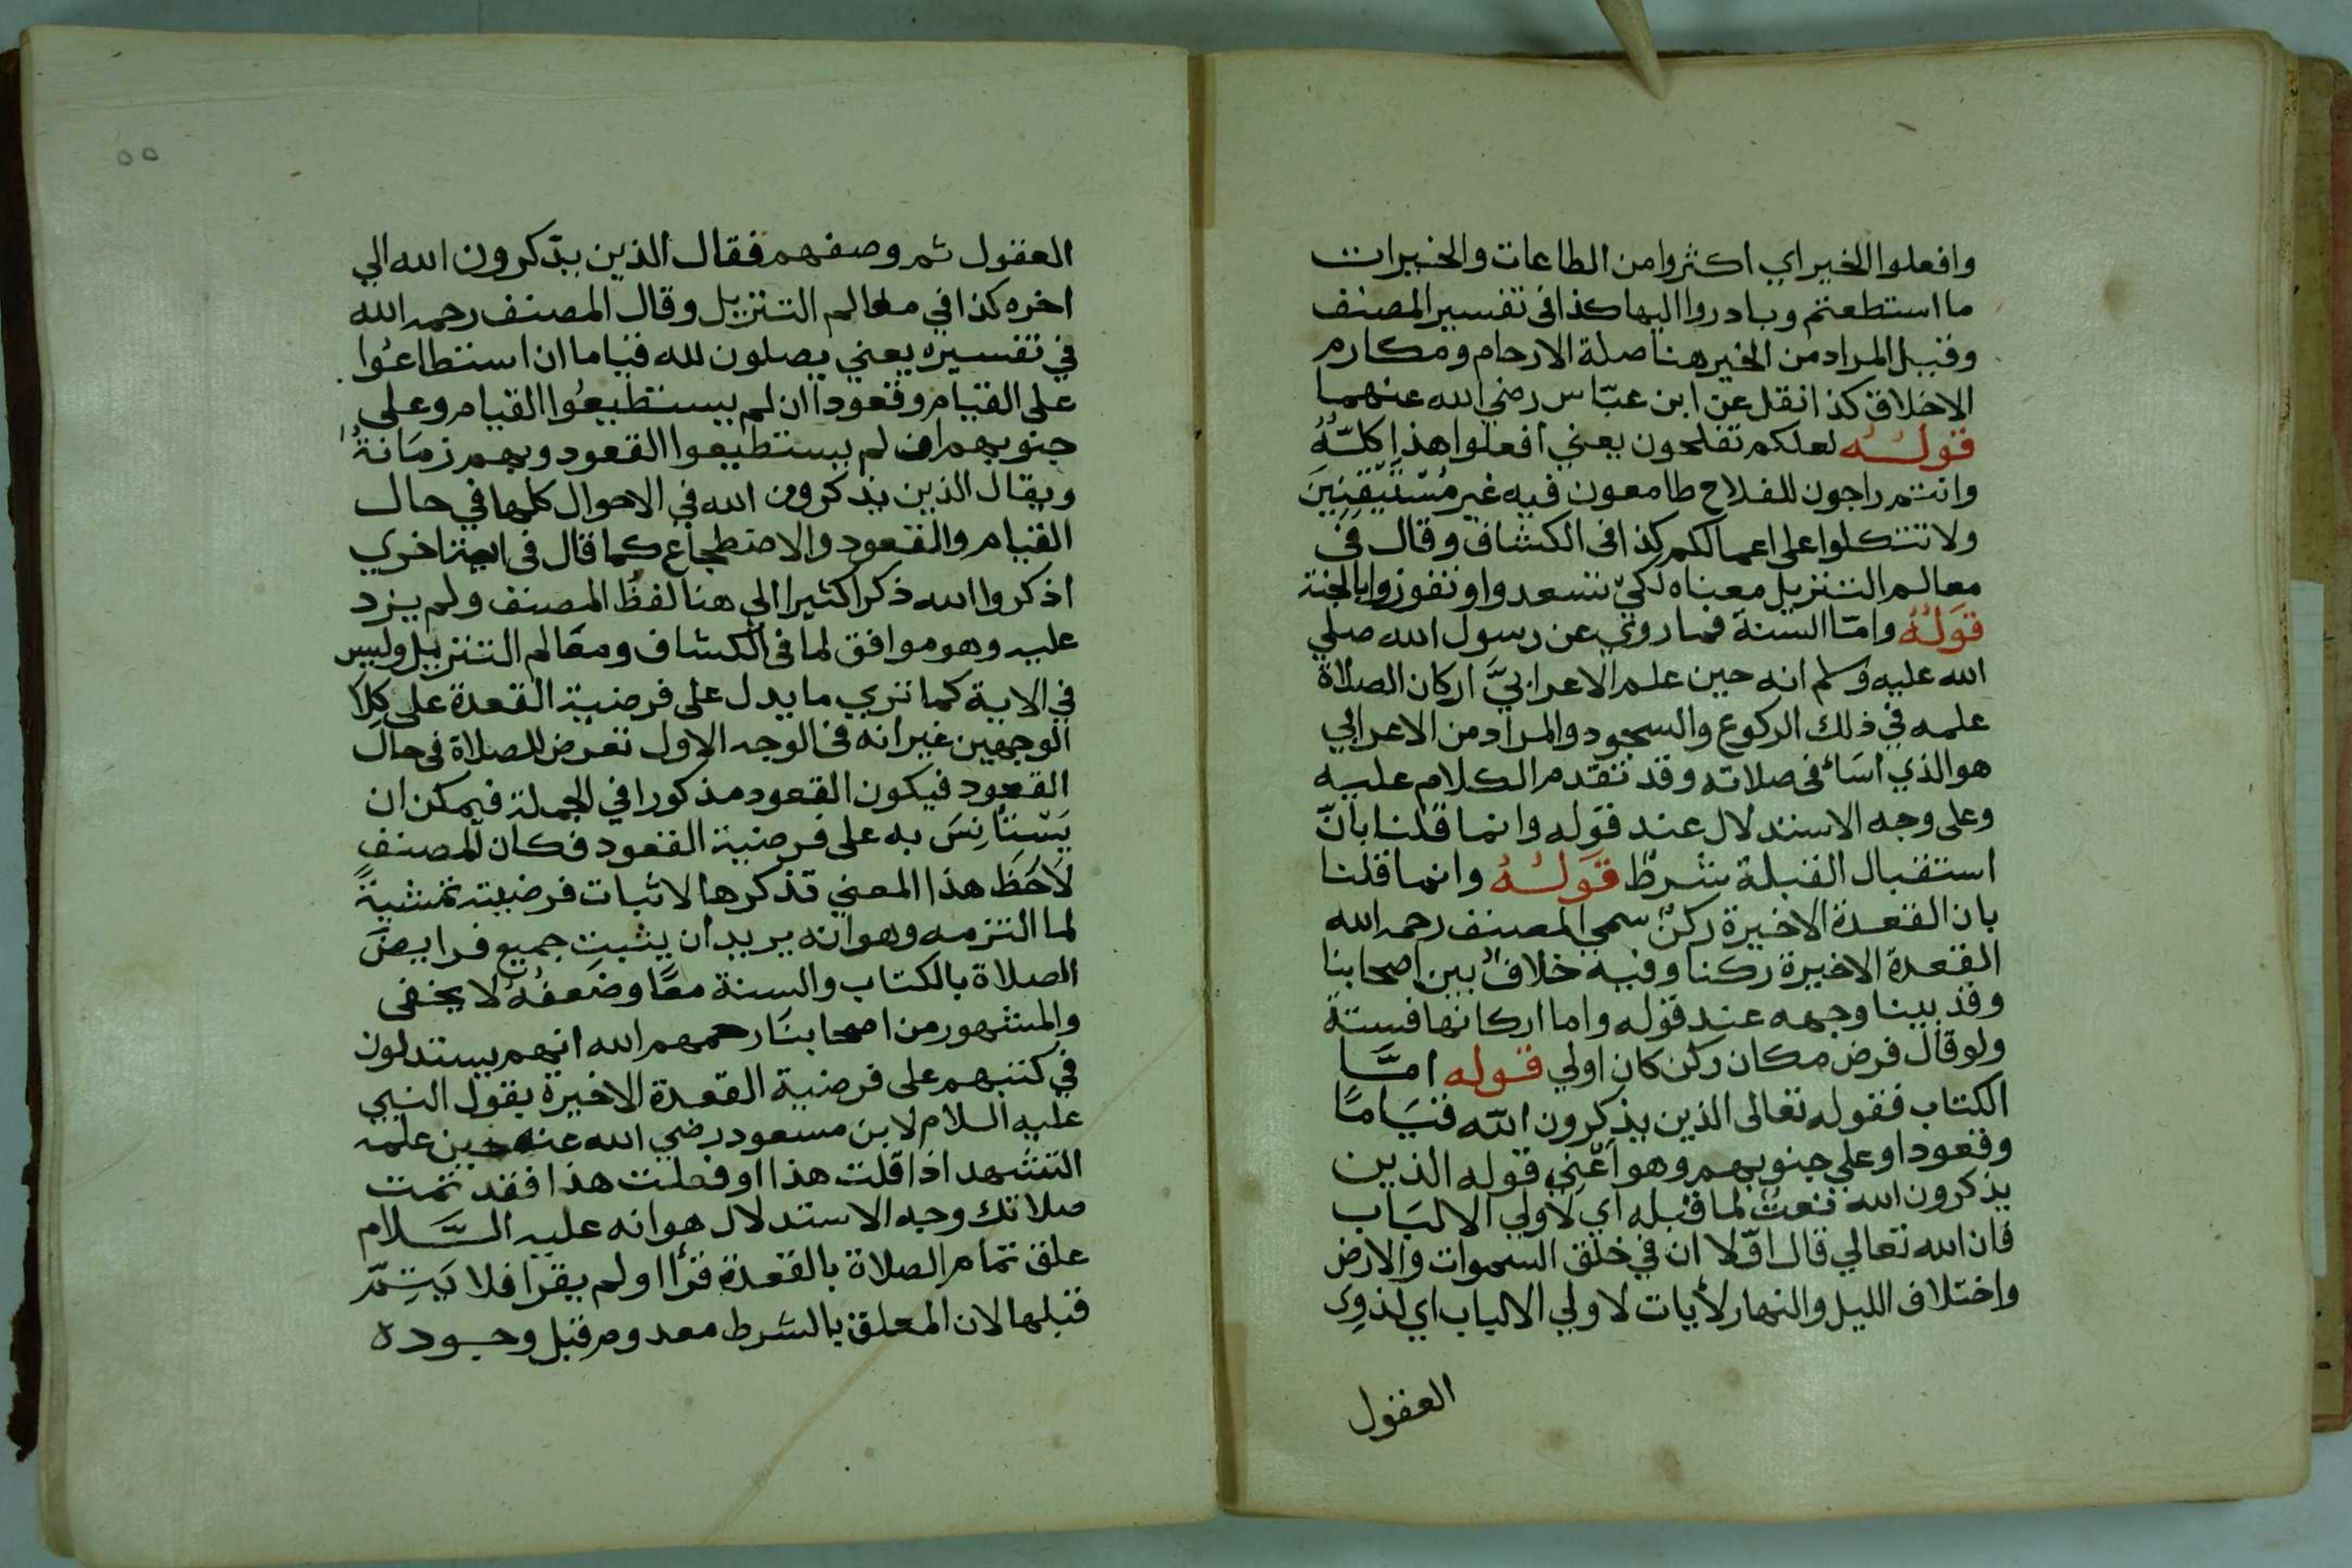 وافعلوا الخير اي اكثروا من الطاعات والخيرات
ما استطعتم وبادروا اليها كذا فى تفسير المصنف
وقيل المراد من الخير هنا صلة الارحام ومكارم
الاخلاق كذا نقل عن ابن عبّاس رضي الله عنهما
قولـه لعلكم تفلحون يعني افعلوا هذا كلّهُ
وانتم راجون للفلاح طامعون فيه غير مُسْتَيقِنِينَ
ولا تتكلوا على اعمالكم كذا فى الكشاف وقال فى
معالم التنزيل معناه لكيّ تسعدوا وتفوزوا بالجنة
قَولُهُ وامّا السنة فما روي عن رسول الله صلي
الله عليه وسلم انه حين علم الاعرابيَّ اركان الصلاة
علمه في ذلك الركوع والسجود والمراد من الاعرابي
هو الذي اسَاءَ فى صلاته وقد تقدم الكلام عليه
وعلى وجه الاستدلال عند قوله وانما قلنا بانّ
استقبال القبلة شرطٌ قَولـُهُ وانما قلنا
بان القعدة الاخيرة ركنٌ سمي المصنف رحمه الله
القعدة الاخيرة ركنا وفيه خلافٌ بين اصحابنا
وقد بينا وجهه عند قوله واما اركانها فستة
ولو قال فرض مكان ركن كان اولي قوله امَّا
الكتاب فقوله تعالى الذين يذكرون الله قيَامًا
وقعودا وعلي جنوبهم وهو اَعْنِي قوله الذين
يذكرون الله نعتٌ لما قبله اي لاولي الالبَاب
فان الله تعالي قال اوّلا ان في خلق السموات والارض
واختلاف الليل والنهار لأيات لاولي الالباب اي لذوِى
العقول
٥٥
العقول ثم وصفهم فقال الذين يذكرون الله الي
اخره كذا في معالم التنزيل وقال المصنف رحمه الله
في تفسيره يعني يصلون لله قياما ان استطاعُوا
على القيام وقعودا ان لم يستطيعُوا القيام وعلى
جنوبهم ان لم يستطيعوا القعود وبهم زمَانةٌ
ويقال الذين يذكرون الله فى الاحوال كلها في حال
القيام والقعود والاضطجاع كما قال فى اية اخري
اذكروا الله ذكرا كثيرا الي هنا لفظُ المصنف ولم يزد
عليه وهو موافق لما فى الكشاف ومعَالم التنزيل وليس
في الاية كما تري ما يدل على فرضية القعدة على كِلاَ
الوجهين غير انه فى الوجه الاول تعرض للصلاة فى حال
القعود فيكون القعود مذكورا في الجملة فيمكن ان
يَسْتأنِسَ به على فرضية القعود فكان المصنف
لَاحَظَ هذا المعني فذكرها لاثبات فرضيته تمشيةً
لما التزمه وهو انه يريد ان يثبت جميع فرايضَ
الصلاة بالكتاب والسنة معًا وضَعفُهُ لا يخفى
والمشهور من اصحابنَا رحمهم الله انهم يستدلون
في كتبهم على فرضية القعدة الاخيرة بقول النبي
عليه السلام لابن مسعود رضي الله عنه حين علمه
التشهد اذا قلت هذا او فعلت هذا فقد تمت
صلاتك وجه الاستدلال هو انه عليه السَّلام
علق تمام الصلاة بالقعدة قرأ او لم يقرا فلا يَتِمّ
قبلها لان المعلق بالشرط معدوم قبل وجوده